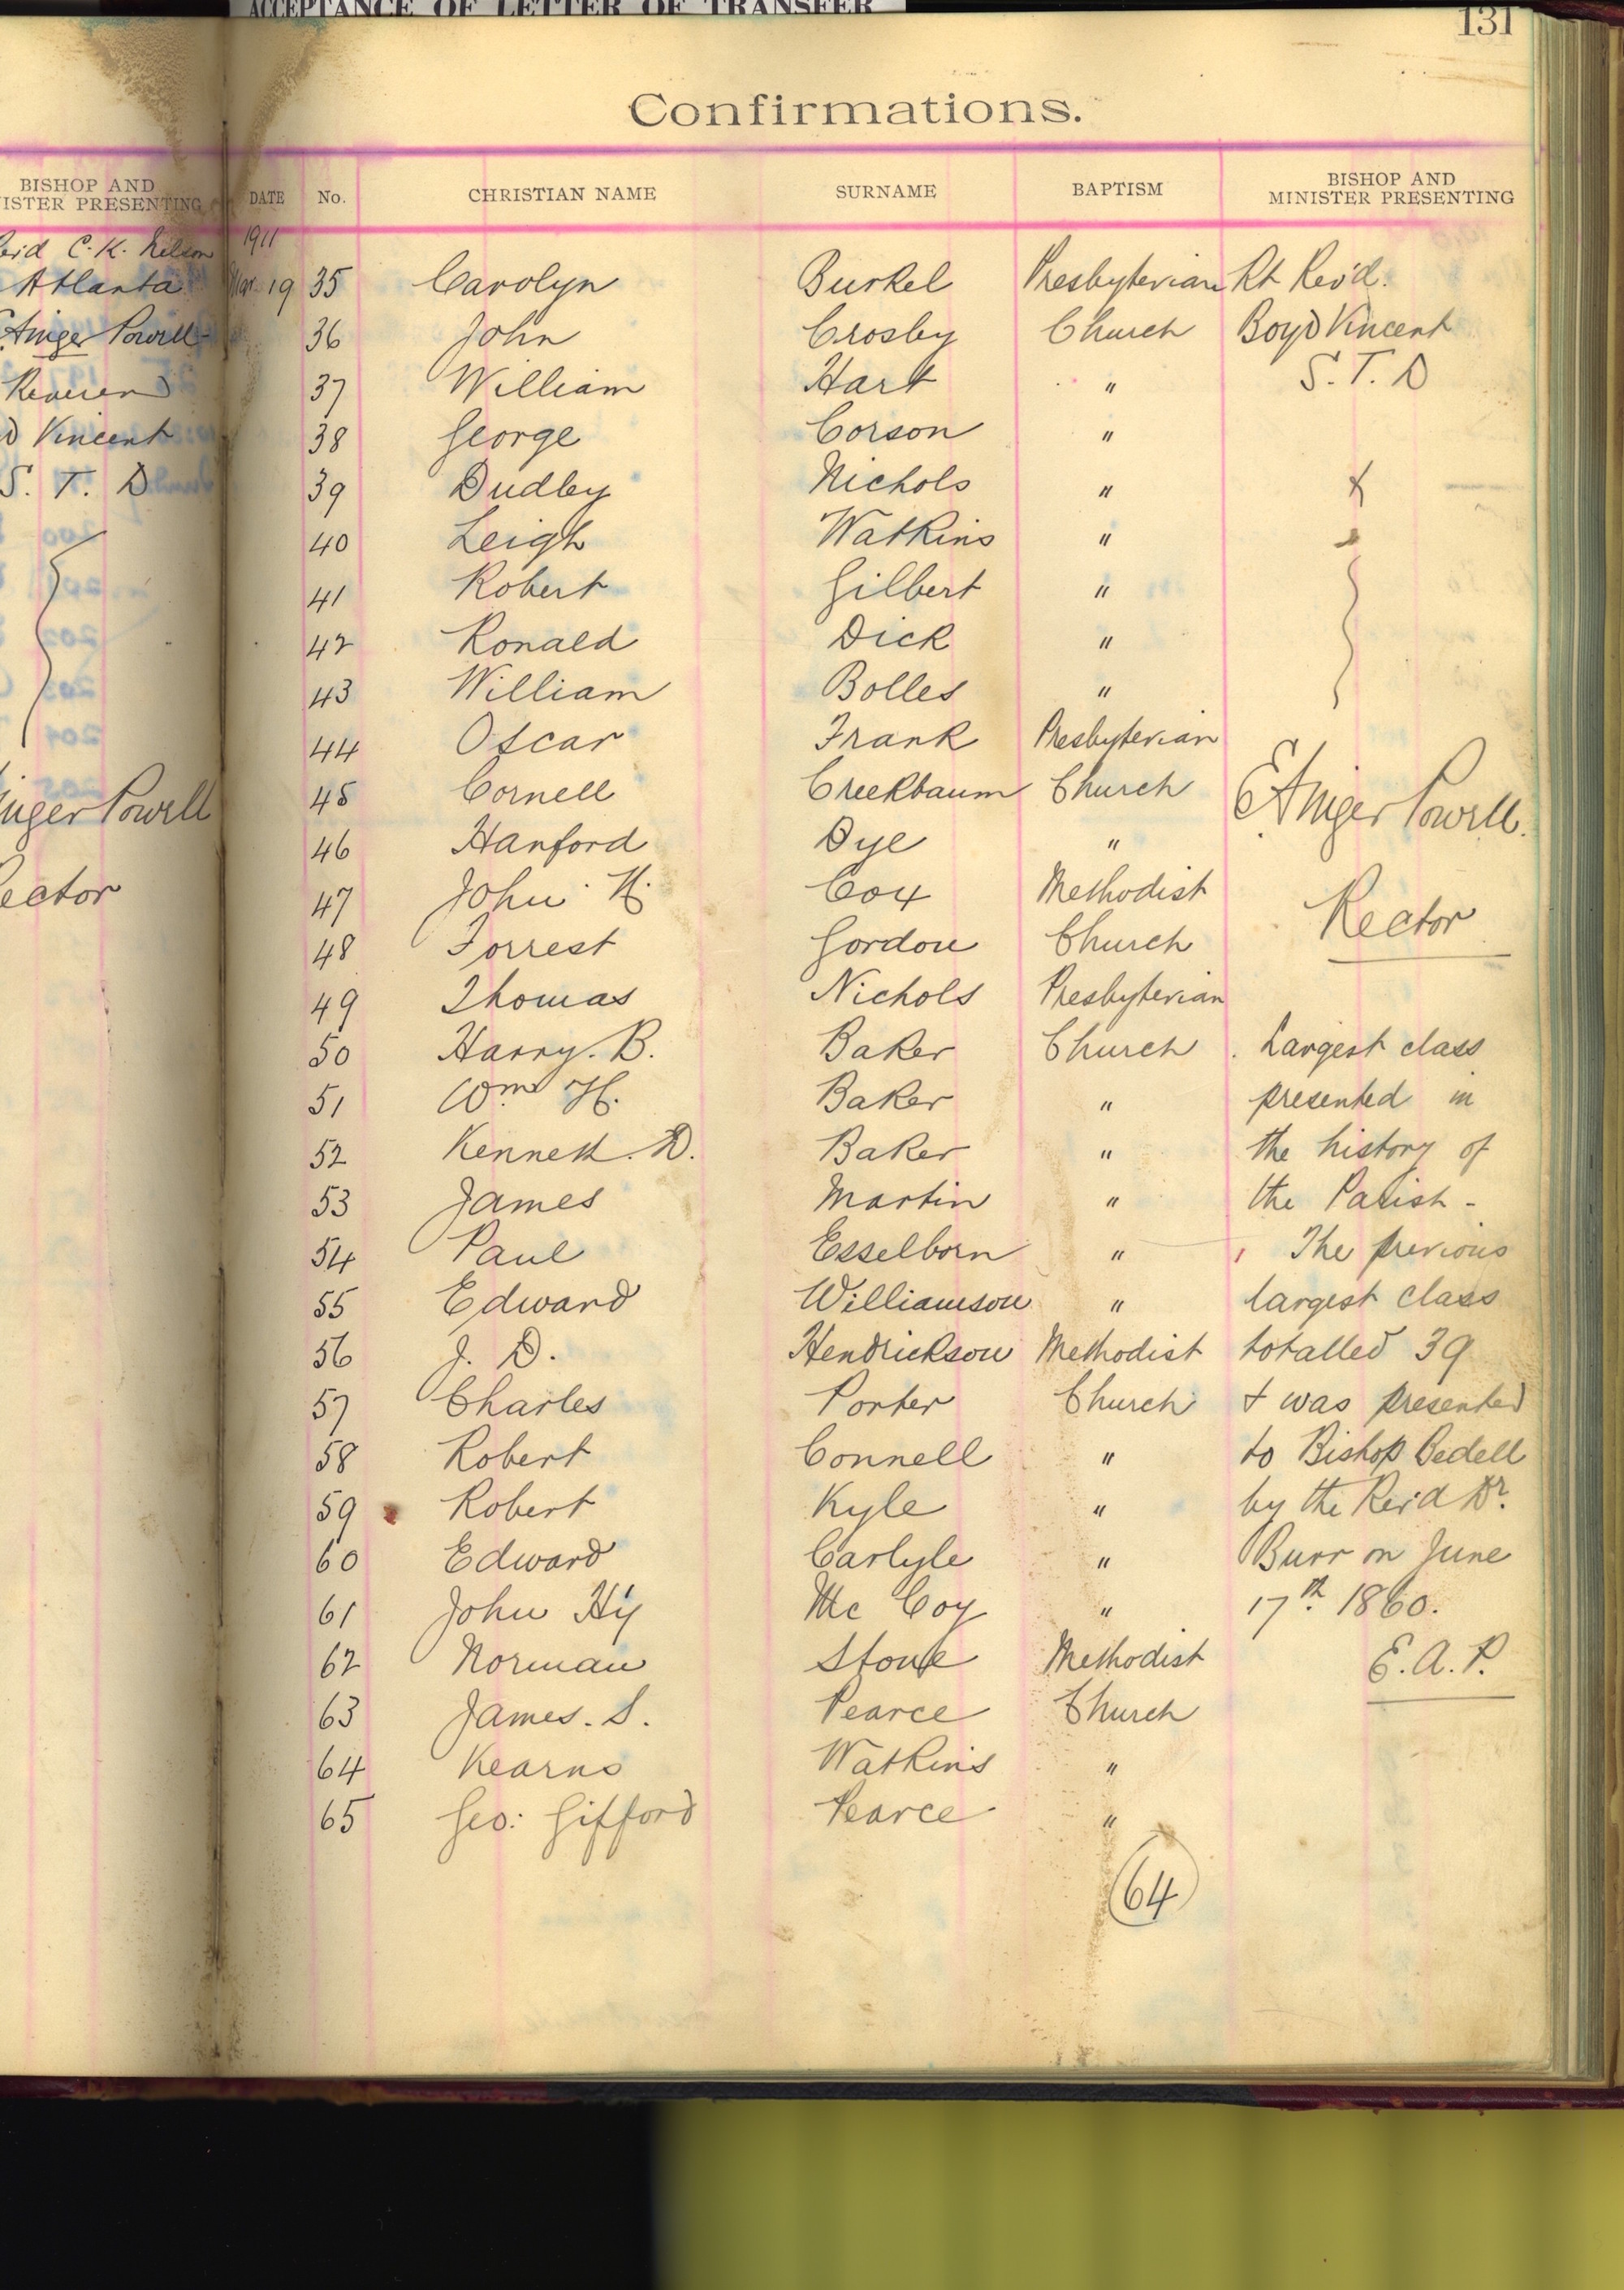 ACCEPTANCE OF LETTER OF TRANSFER
131
Confirmations.
BISHOP AND
ISTER PRESENTING
C. K. Nelson
Atlanta
Ainger Powell
Reveren
Vincent
S. T. D
inger Powell
ector
DATE No. CHRISTIAN NAME SURNAME BAPTISM BISHOP AND
MINISTER PRESENTING
1911
Mar. 19 35 Carolyn Burkel Presbyterian Rt Rev'd.
36 John Crosby Church Boyd Vincent
37 William Hart " S. T. D
38 George Corson "
39 Dudley Nichols "
40 Leigh Watkins "
41 Robert Gilbert "
42 Ronald Dick "
43 William Bolles "
44 Oscar Frank Presbyterian
45 Cornell Creekbaum Church E Ainger Powell.
46 Hanford Dye "
47 John H. Cox Methodist Rector
48 Forrest Gordon Church
49 Thomas Nichols Presbyterian
50 Harry. B. Baker Church Largest class
51 Wm H. Baker " presented in
52 Kenneth. D. Baker " the history of
53 James Martin " the Parish -
54 Paul Esselborn " The previous
55 Edward Williamson " largest class
56 J. D. Hendrickson Methodist totalled 39
57 Charles Porter Church & was presented
58 Robert Connell " to Bishop Bedell
59 Robert Kyle " by the Rev'd Dr.
60 Edward Carlyle " Burr on June
61 John Hy Mc Coy " 17th. 1860.
62 Norman Stowe Methodist E. A. P.
63 James. S. Pearce Church
64 Kearns Watkins "
65 Geo: Gifford Pearce "
64